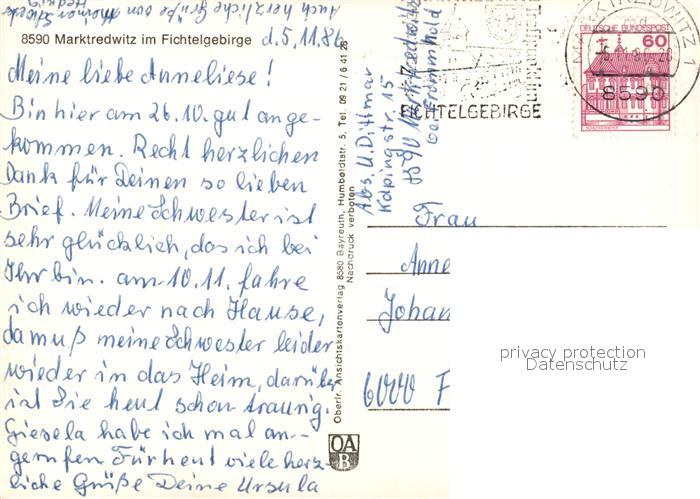 Auch herzliche Grüße von meiner
8590 Marktredwitz im Fichtelgebirge d. 5.11.86
Meine liebe Anneliese!
Bin hier am 26.10. gut ange-
kommen. Recht herzlichen
Dank für Deinen so lieben
Brief. Meine Schwester ist
sehr glücklich, das ich bei
Ihr bin. am 10.11. fahre
ich wieder nach Hause,
da muß meine Schwester leider
wieder in das Heim, darüber
ist Sie heut schon traurig.
Giesela habe ich mal an-
gerufen Für heut viele herz-
liche Grüße Deine Ursula
Oberfr. Ansichtskartenverlag 8580 Bayreuth, Humboldtstr. 5, Tel. 09 21 / 6 41 26
Nachdruck verboten
OA
B
Abs. U. Dittmar
Kolpingstr. 15
8590 Marktredwitz
FICHTELGEBIRGE
MARKTREDWITZ 1
8590
DEUTSCHE BUNDESPOST
60
Frau
Anne
Johan
6000 F
privacy protection
Datenschutz